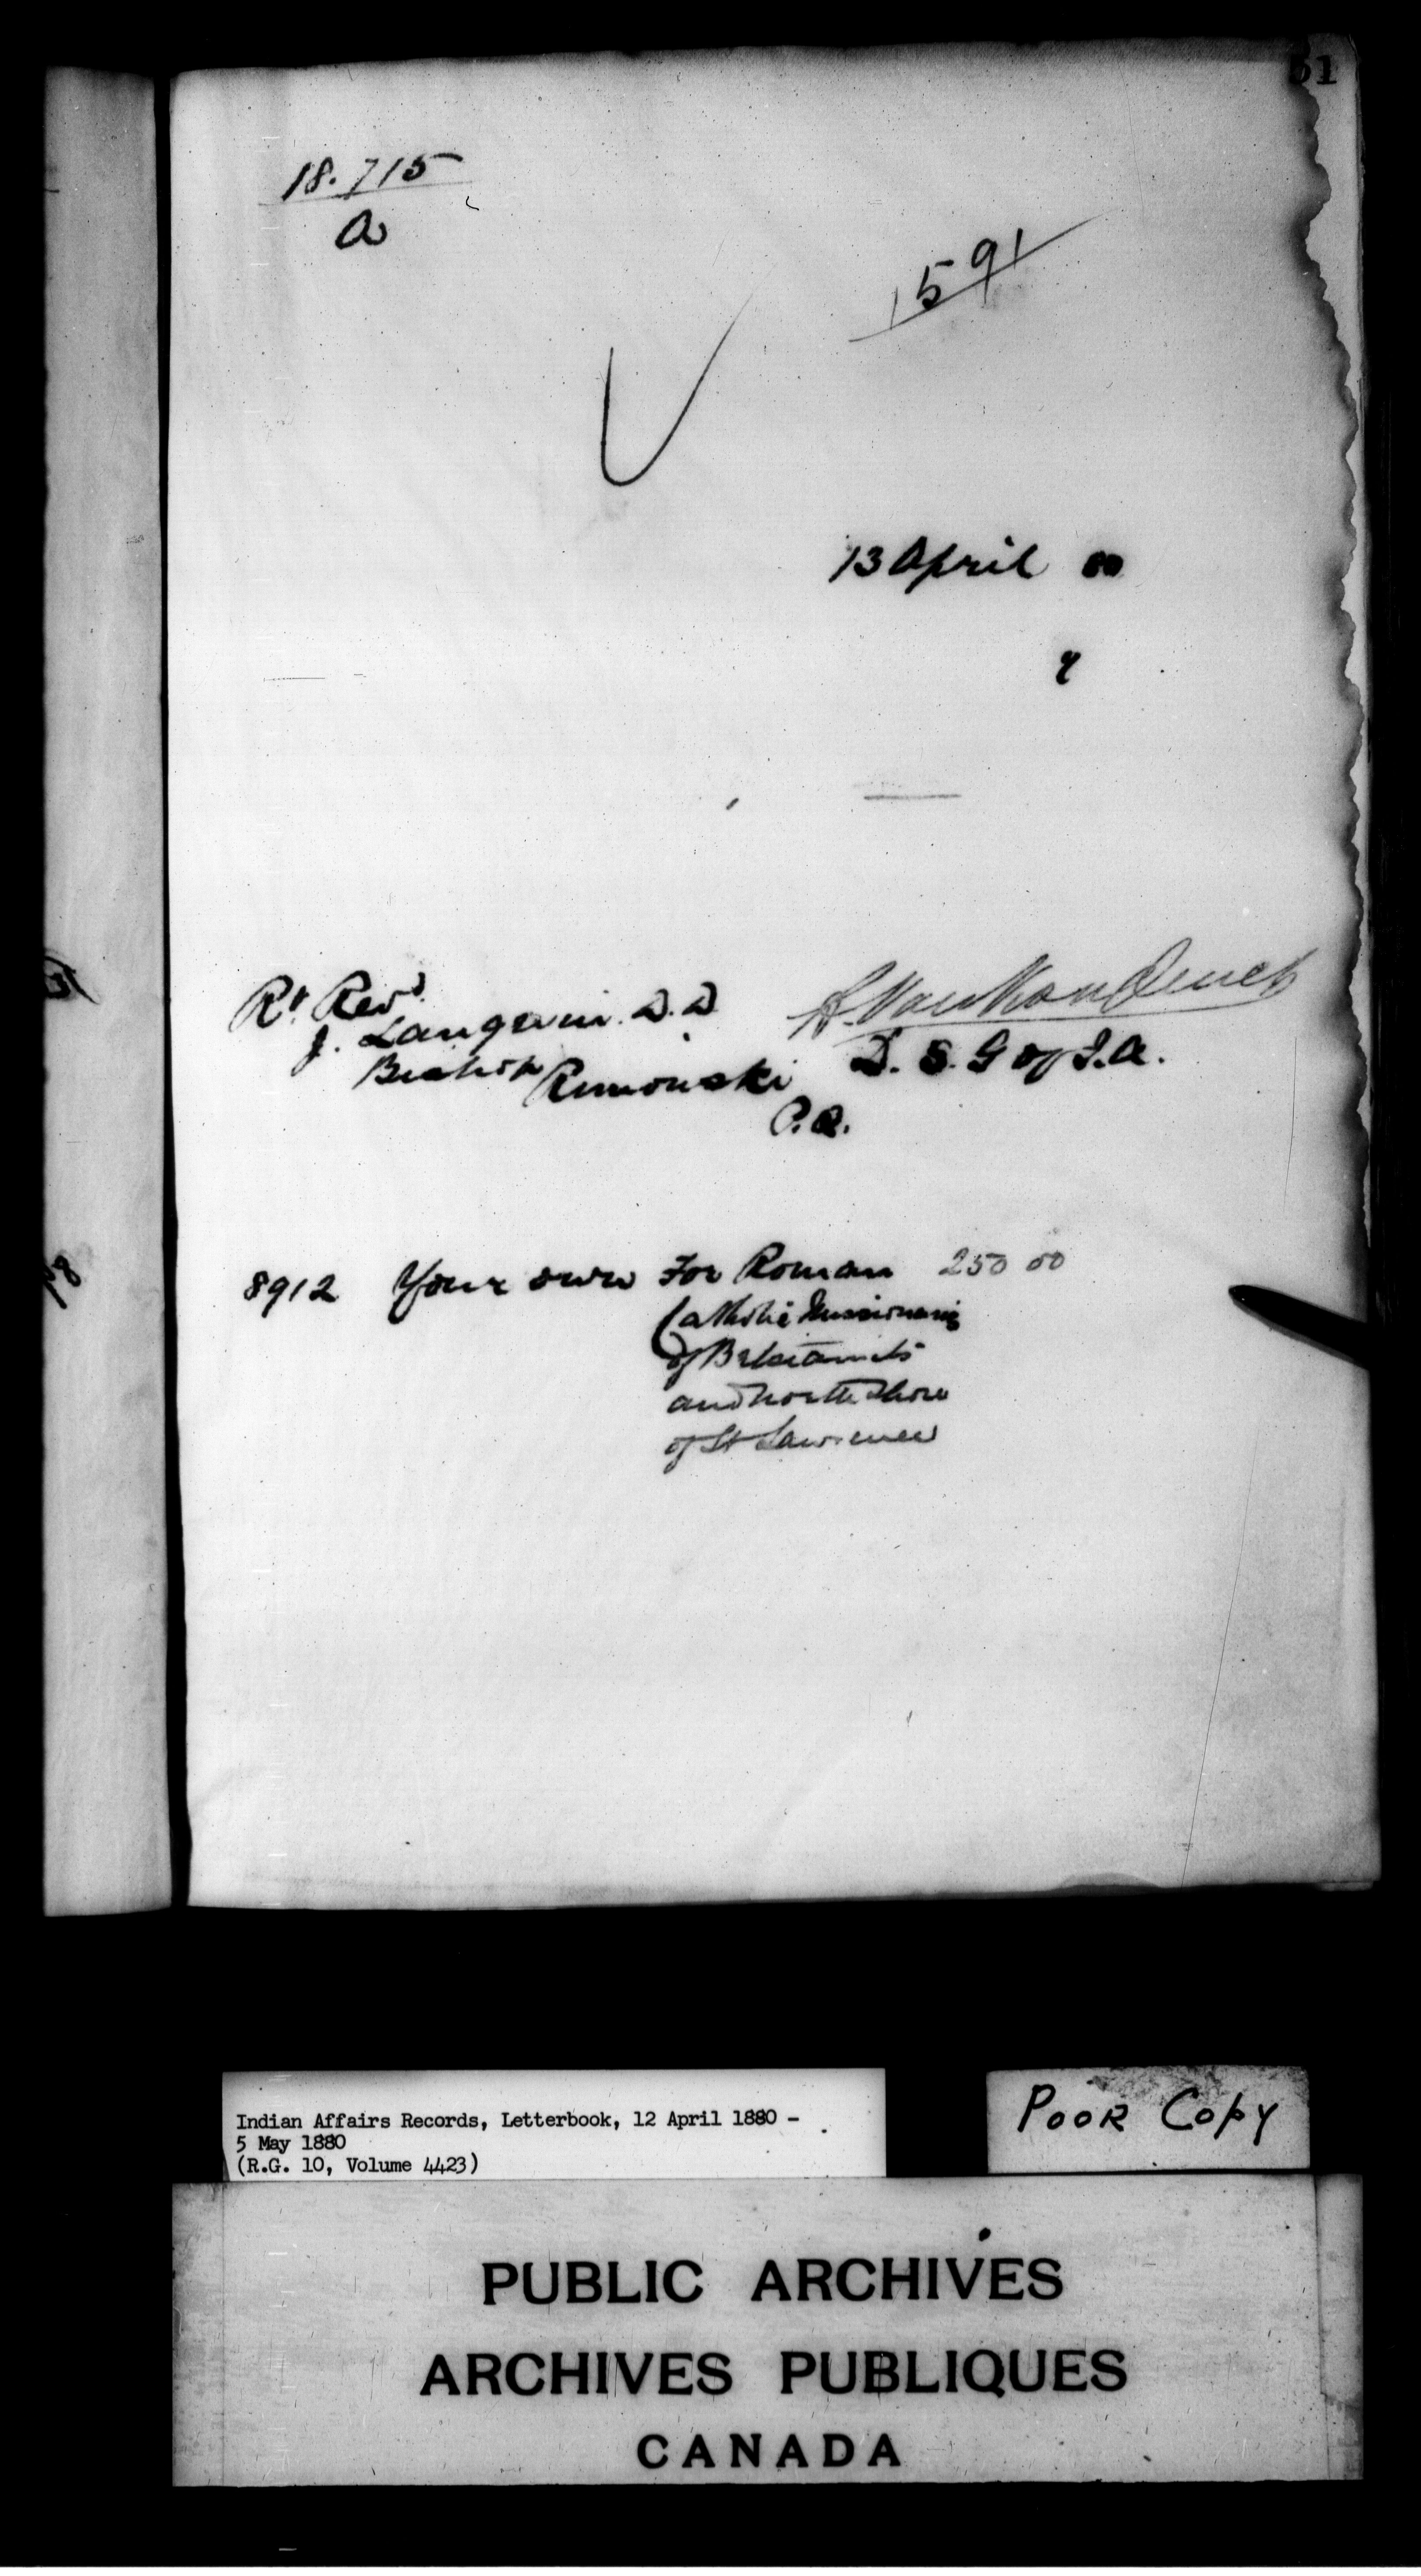 51
18.715
a
1591
13 April 80
Rt. Revd.
J. Langevin. D. D
Bishop
Rimouski
P.Q.
L. VanKoughnet
D. S. G of I. A.
8912 Your own For Roman 250 00
Catholic Missionaries
of Betsiamits
and north Shore
of St Lawrence
Indian Affairs Records, Letterbook, 12 April 1880 -
5 May 1880
(R.G. 10, Volume 4423)
POOR COPY
PUBLIC ARCHIVES
ARCHIVES PUBLIQUES
CANADA